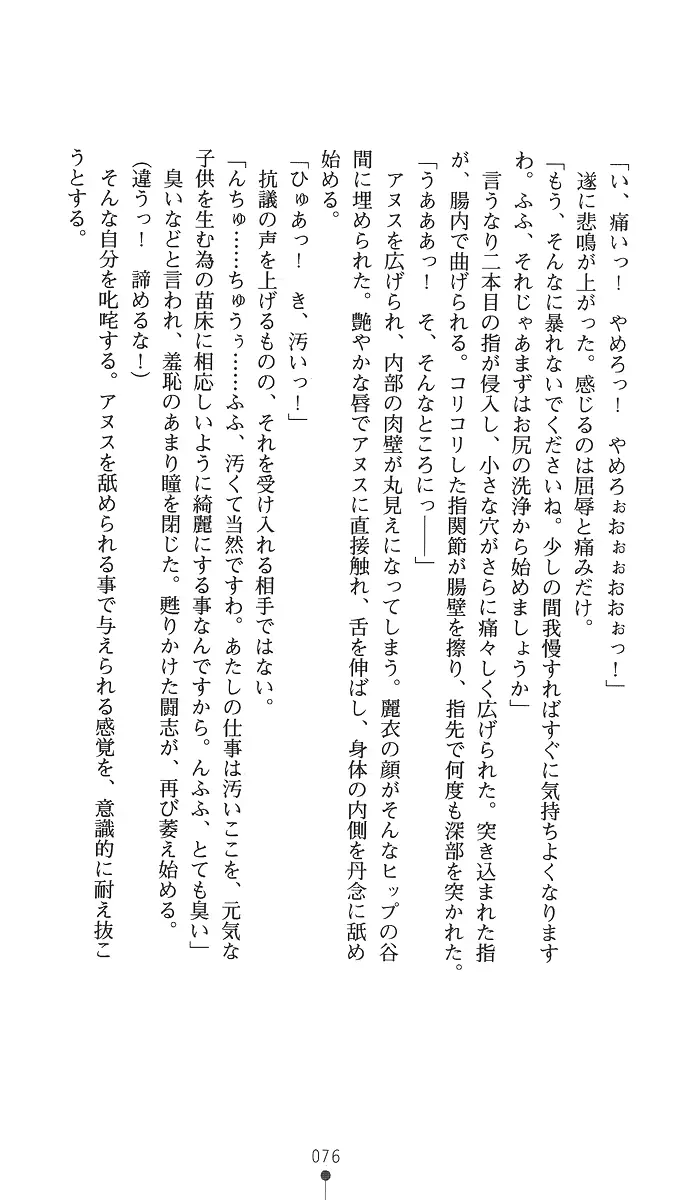 「い、痛いっ！　やめろっ！　やめろぉおぉぉおおぉっ！」
　遂に悲鳴が上がった。感じるのは屈辱と痛みだけ。
「もう、そんなに暴れないでくださいね。少しの間我慢すればすぐに気持ちよくなります
わ。ふふ、それじゃあまずはお尻の洗浄から始めましょうか」
　言うなり二本目の指が侵入し、小さな穴がさらに痛々しく広げられた。突き込まれた指
が、腸内で曲げられる。コリコリした指関節が腸壁を擦り、指先で何度も深部を突かれた。
「うあああっ！　そ、そんなところにっ――」
　アヌスを広げられ、内部の肉壁が丸見えになってしまう。麗衣の顔がそんなヒップの谷
間に埋められた。艶やかな唇でアヌスに直接触れ、舌を伸ばし、身体の内側を丹念に舐め
始める。
「ひゅあっ！　き、汚いっ！」
　抗議の声を上げるものの、それを受け入れる相手ではない。
「んちゅ……ちゅうぅ……ふふ、汚くて当然ですわ。あたしの仕事は汚いここを、元気な
子供を生む為の苗床に相応しいように綺麗にする事なんですから。んふふ、とても臭い」
　臭いなどと言われ、羞恥のあまり瞳を閉じた。甦りかけた闘志が、再び萎え始める。
（違うっ！　諦めるな！）
　そんな自分を叱咤する。アヌスを舐められる事で与えられる感覚を、意識的に耐え抜こ
うとする。
076